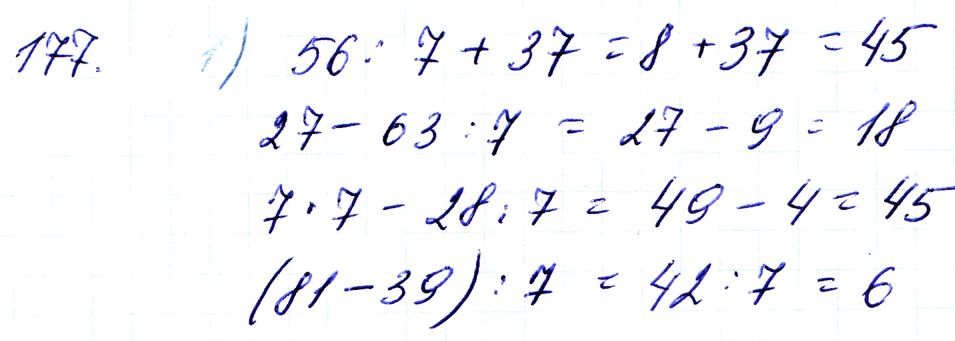 177. 1) 56 : 7 + 37 = 8 + 37 = 45
27 - 63 : 7 = 27 - 9 = 18
7 · 7 - 28 : 7 = 49 - 4 = 45
(81 - 39) : 7 = 42 : 7 = 6